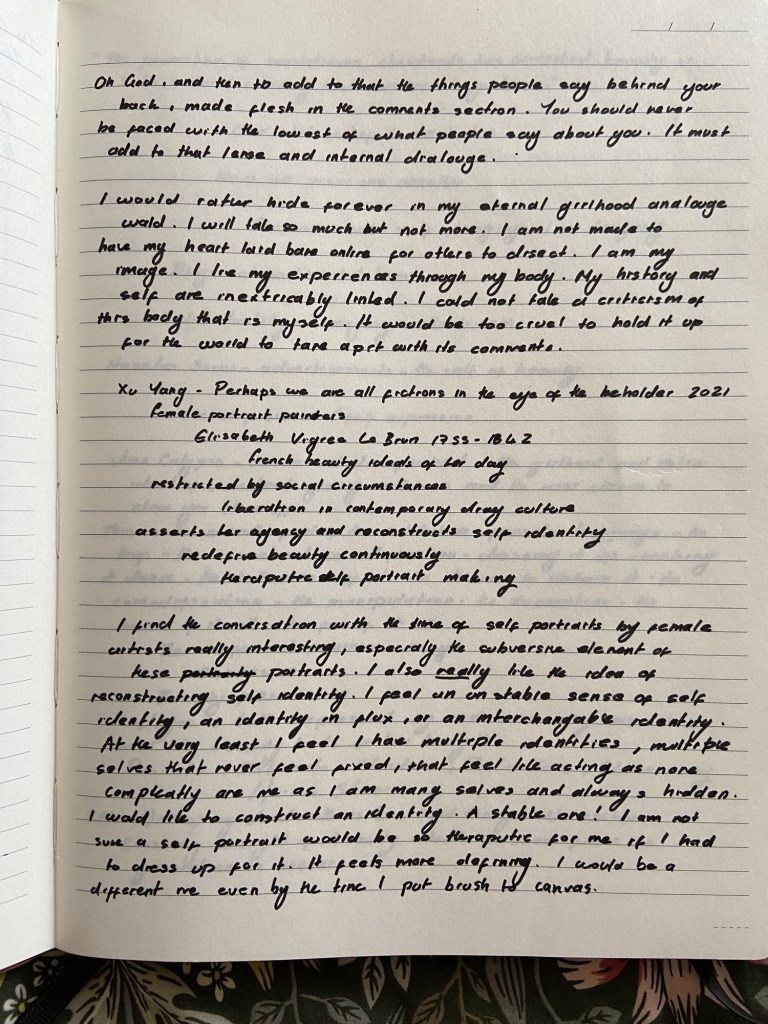 Oh God, and then to add to that the things people say behind your
back, made flesh in the comments section. You should never
be faced with the lowest of what people say about you. It must
add to that lense and internal dialouge.
I would rather hide forever in my eternal girlhood analouge
wald. I will take so much but not more. I am not made to
have my heart laid bare online for others to disect. I am my
image. I live my experiences through my body. My history and
self are inextricably linked. I cold not take a criticism of
this body that is myself. It would be too cruel to hold it up
for the world to tare aprt with its comments.
Xu Yang - Perhaps we are all fictions in the eye of the beholder 2021
female portrait painters
Elisabeth Vigree Le Brun 1755-1842
french beauty ideals of her day
restricted by social circumstances
liberation in contemporary drag culture
asserts her agency and reconstructs self identity
redefine beauty continuously
theraputic self portrait making
I find the conversation with the time of self portraits by female
artists really interesting, especialy the subversive element of
these portraity portraits. I also really like the idea of
reconstructing self identity. I feel an unstable sense of self
identity, an identity in flux, or an interchangable identity.
At the very least I feel I have multiple identities, multiple
selves that never feel fixed, that feel like acting as none
compleatly are me as I am many selves and always hidden.
I wold like to construct an identity. A stable one! I am not
sure a self portrait would be so theraputic for me if I had
to dress up for it. It feels more defining. I would be a
different me even by the time I put brush to canvas.